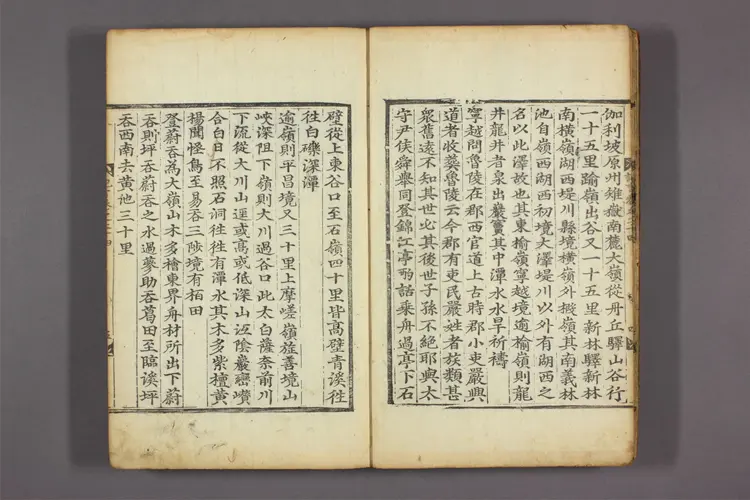 伽利坡原州雉嶽南麓大嶺從丹丘驛山谷行
一十五里踰嶺出谷又一十五里新林驛新林
南橫嶺湖西堤川縣境橫嶺外撥嶺其南義林
池自嶺西湖西初境大澤堤川以外有湖西之
名以此澤故也其東楡嶺寧越境逾楡嶺則龍
井龍井者泉出巖竇其中潭水水旱祈禱
寧越問魯陵在郡西官道上古時郡小吏嚴興
道者收葬魯陵云今郡有吏民嚴姓者族類甚
衆舊遠不知其世必其後世子孫不絕耶與太
守尹侯舜擧同登錦江亭酌話乘舟過亭下石
壁從上東谷口至石嶺四十里皆高壁靑溪徃
徃白礫深潭
逾嶺則平昌境又三十里上摩嵯嶺旌善境山
峽深阻下嶺則大川過谷口此太白薩奈前川
下流從大川山逕或高或低深山沍陰巖巒巑
合白日不照石洞徃徃有潭水其木多紫檀黃
楊聞怪鳥至易呑三陟境有栢田
登蔚呑爲大嶺山木多檜東界舟材所出下蔚
呑則坪呑蔚呑之水過蔘助呑葛田至臨溪坪
呑西南去黃池三十里